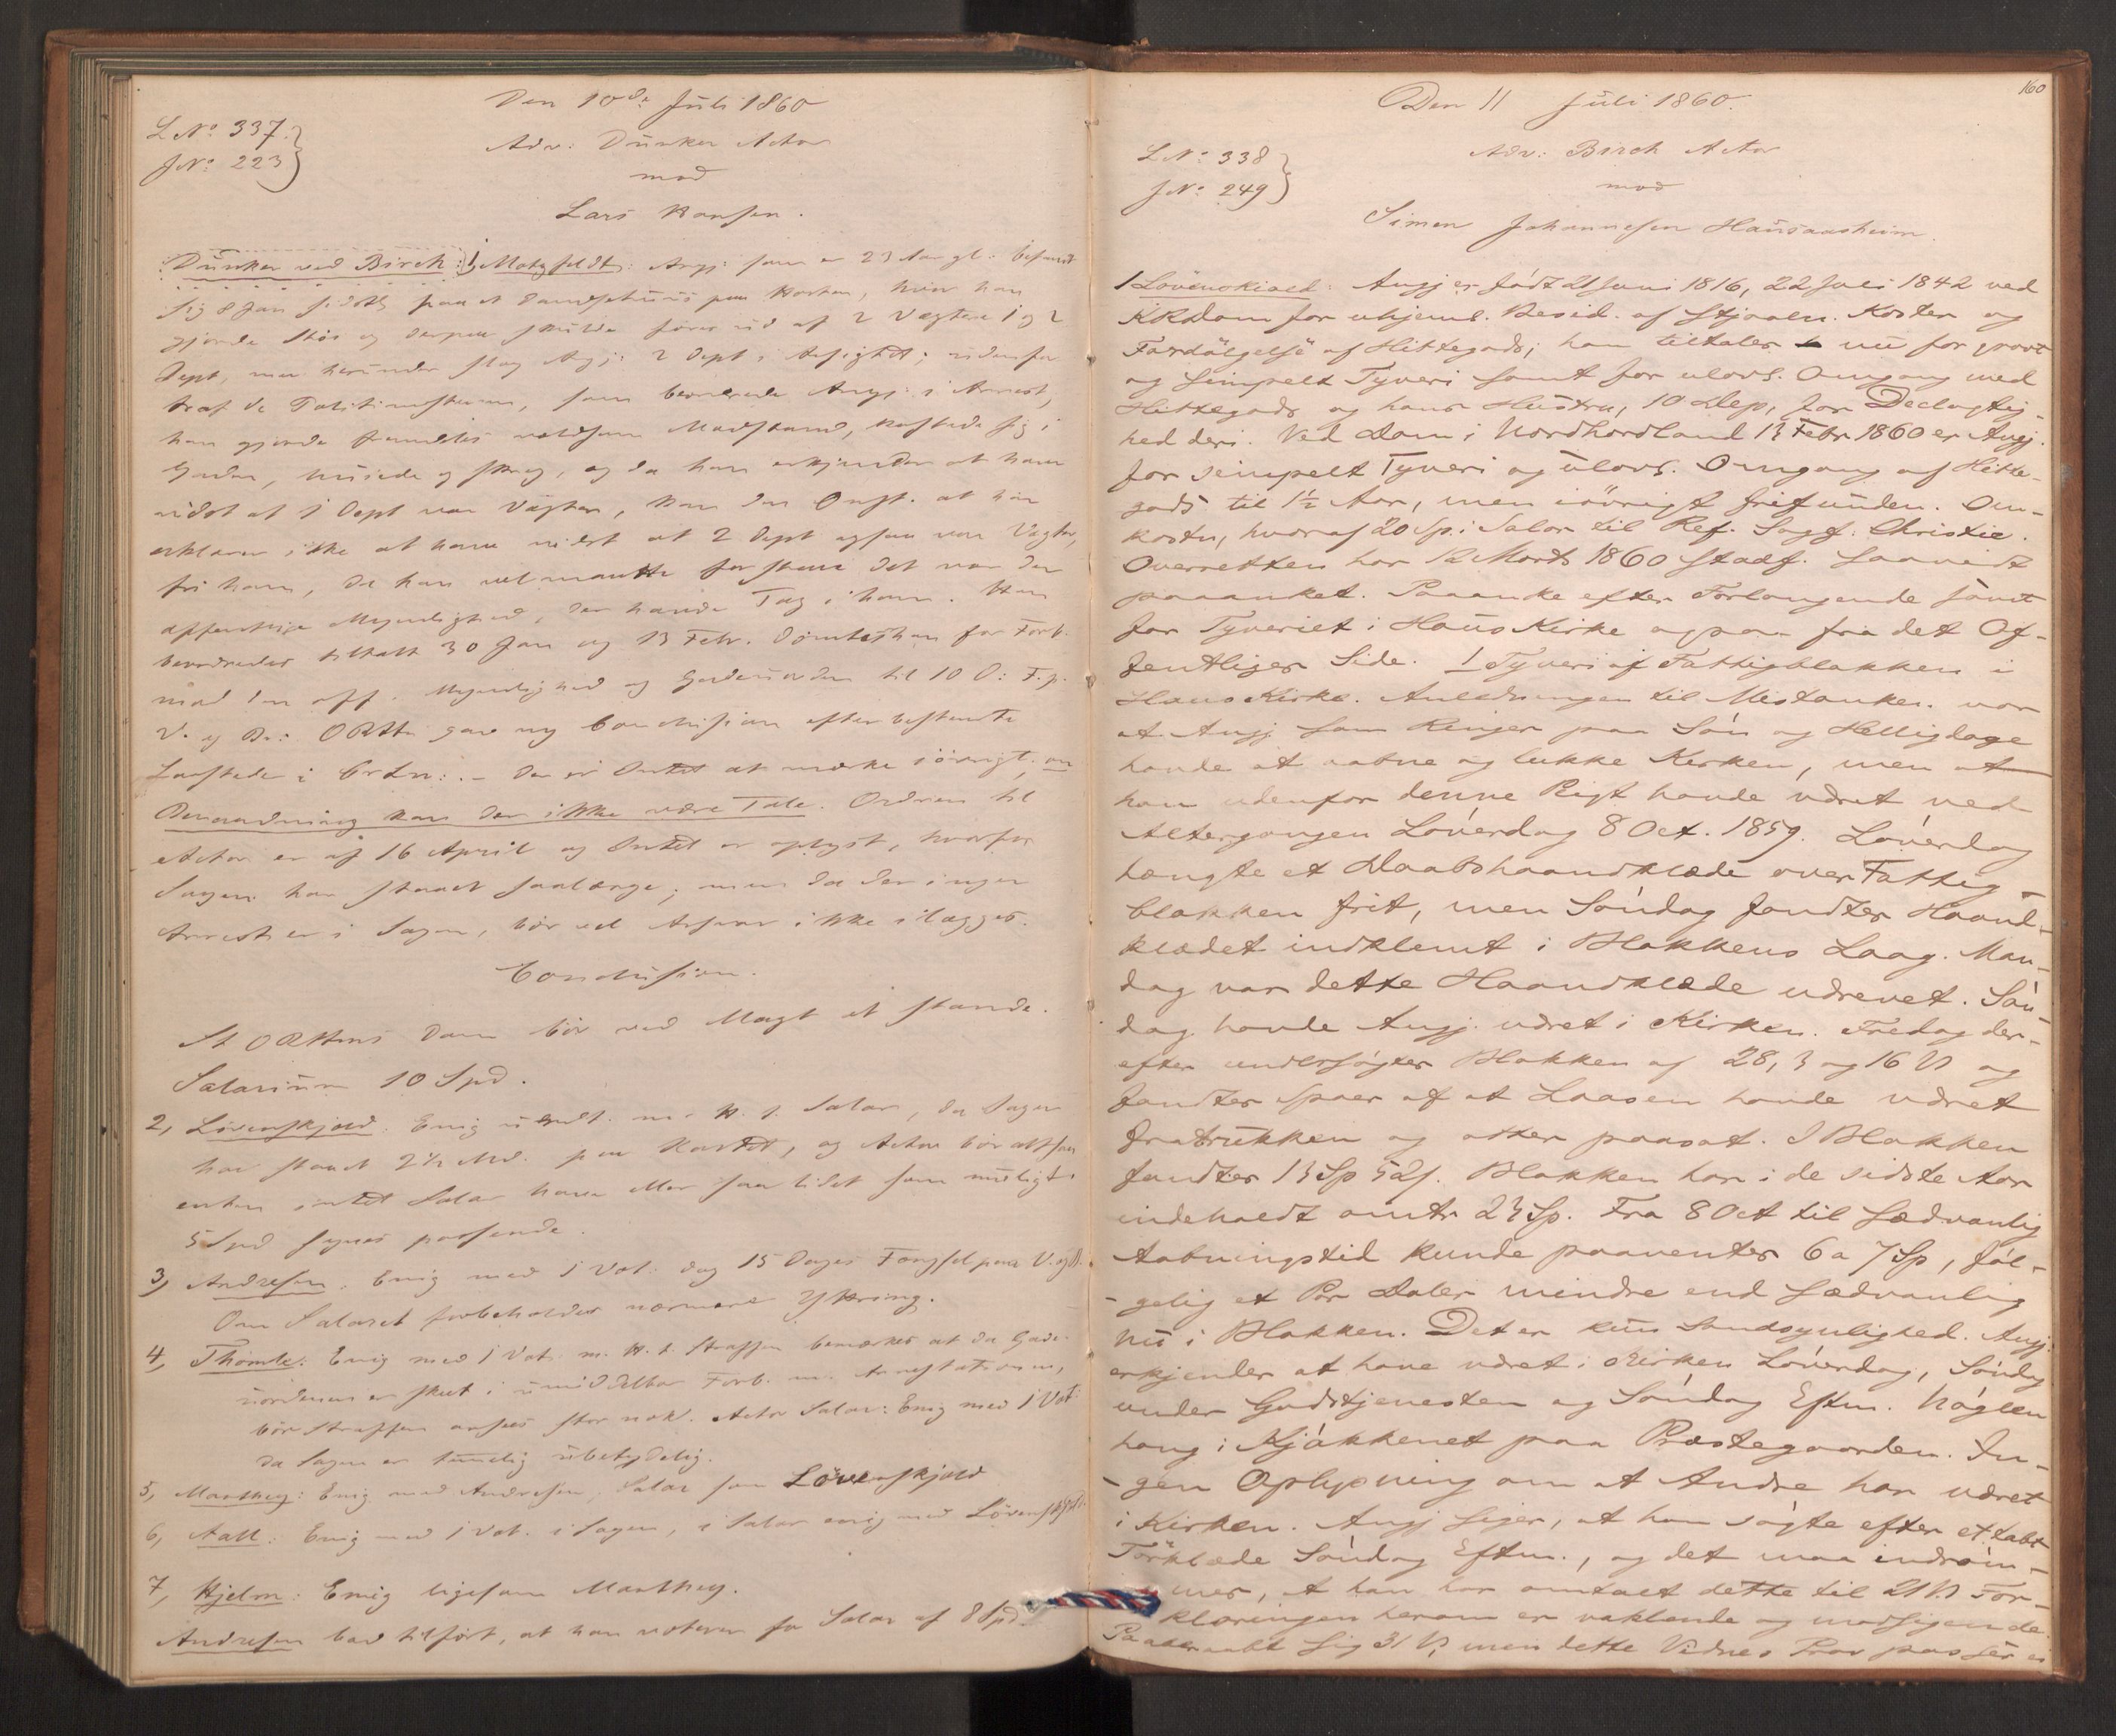 Den 10de Juli 1860
L No 337.
J No 223
Adv: Dunker Actor
mod
Lars Hansen.
Dunker ved Birch: 1, Motzfeldt: Angj: som er 23 Aar gl. befandt
sig 8 Jan sidstl paa et Dandsehuus paa, hvor han
gjorde Støi og derpaa skulde føres ud af 2 Vægtere 1 og 2
Dept, men herunder slog Angj: 2 Dept i Ansigtet; udenfor
traf de Politimesteren, som beordrede Angj: i Arrest,
han gjorde fremdeles voldsom Modstand, kastede sig i
Gaden, huiede og skreg, og da han erkjender at have
vidst at 1 Dept var Vægter, kan den Omst. at han
erklærer ikke at have vidst at 2 Dept ogsaa var Vægter,
fri ham, da han vel maatte forstaae det var den
offentlige Myndighed, der havde Tag i ham. Han
beordredes tiltalt 30 Jan og 13 Febr. dømtes han for Forb.
mod den off. Myndighed og Gadeuorden til 10 D: F. p.
V. og Br: ORtten gav ny Conclusion efter bestemte
Lovsteder i CrLn: - Der er Intet at mærke iøvrigt, om
Benaadning kan der ikke være Tale. Ordren til
Actor er af 16 April og Intet er oplyst, hvorfor
Sagen har staaet saalænge; men da der ingen
Arrest er i Sagen, bør vel Ansvar ikke ilægges.
Conclusion.
St ORttens Dom bør ved Magt at stande.
Salarium 10 Spd.
2, Løvenskjold: Enig undt. m. H. t. Salar, da Sagen
har staaet 2½ Md. paa, og Actor bør altsaa
enten intet Salar have eller saa lidet som muligt.
5 Spd synes passende.
3, Andresen: Enig med 1 Vot: dog 15 Dages Fængsel paa V. og B.
Om Salaret forbeholdes nærmere Yttring.
4, Thomle: Enig med 1 Vot: m. H. t. Straffen bemærkes at da Gade-
uordenen er skeet i umiddelbar Forb. m. Arrestationen,
bør Straffen ansees stor nok. Actor Salar: Enig med 1 Vot:
da Sagen er temmelig ubetydelig.
5, Manthey: Enig med Andresen, Salar som Løvenskjold
6, Aall: Enig med 1 Vot. i Sagen, i Salar enig med Løvenskjold.
7, Hjelm: Enig ligesom Manthey.
Andresen bad tilført, at han voterer for Salar af 8 Spd.
160
Den 11 Juli 1860.
L No 338
J No 249
Adv: Birch Actor
mod
Simen Johannesen Hausaasheim.
1 Løvenskiold: Angj er født 21 Juni 1816, 22 Juli 1842 ved
KRdom for uhjeml. Besid. af stjaaln. Koster og
Fordølgelse af Hittegods; han tiltales nu for grovt
og simpelt Tyveri samt for ulovl. Omgang med
Hittegods og hans Hustru, 10 Dep, for Deelagtig-
hed deri. Ved Dom i Nordhordland 13 Febr 1860 er Angj.
for simpelt Tyveri og ulovl. Omgang af Hitte-
gods til 1½ Aar, men iøvrigt frifunden. Om-
kostn, hvoraf 20 Sp. i Salar til Ref. Sagf. Christie.
Overretten har 12 Marts 1860 stadf. saavidt
paaanket. Paaanke efter Forlangende samt
for Tyveriet i Haus Kirke ogsaa fra det Of-
fentliges Side. 1 Tyveri af Fattigblokken i
Haus Kirke. Anledningen til Mistanken var
at Angj som Ringer paa Søn og Helligdage
havde at aabne og lukke Kirken, men at
han udenfor denne Pligt havde været ved
Altergangen Løverdag 8 Oct. 1859. Løverdag
hængte et Daabshaandklæde over Fattig-
blokken frit, men Søndag fandtes Haand-
klædet indklemt i Blokkens Laag. Man-
dag var dette Haandklæde udrevet. Søn-
dag havde Angj. været i Kirken. Fredag der-
efter undersøgtes Blokken af 28, 3 og 16 V og
fandtes Spoer af at Laasen havde været
fratrukken og atter paasat. I Blokken
fandtes 13 Sp 52 s. Blokken har i de sidste Aar
indeholdt omtr 23 Sp. Fra 8 Oct til sædvanlig
Aabningstid kunde paaventes 6 a 7 Sp, føl-
gelig et Par Daler mindre end sædvanlig
nu i Blokken. Det er kun Sandsynlighed. Angj.
erkjender at have været i Kirken Løverdag, Søndag
under Gudstjenesten og Søndag Eftm. Nøglen
hang i Kjøkkenet paa Præstegaarden. In-
gen Oplysning om at Andre har været
i Kirken. Angj siger, at han søgte efter et tabt
Tørklæde Søndag Eftm., og det maa indrøm-
mes, at han har omtalt dette til 21 V. For-
klaringen herom er vaklende og modsigende.
Paaberaabt sig 31 V, men dette Vidnes Prov passer ei